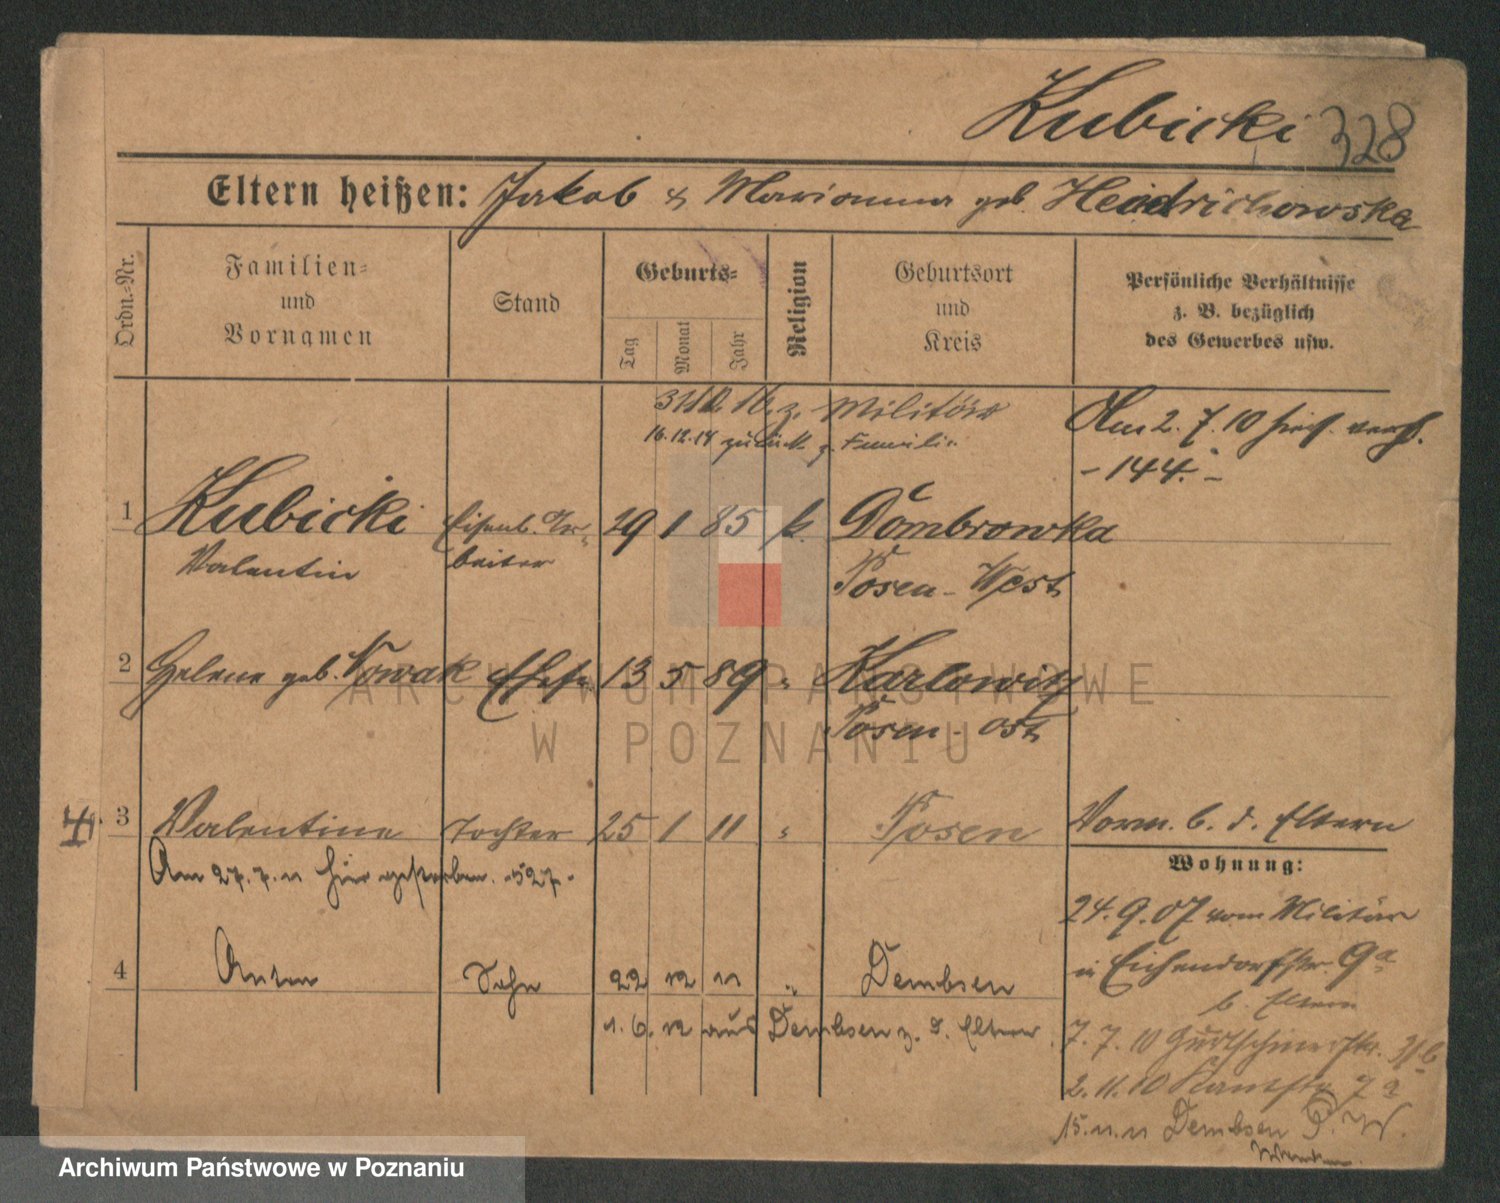 Kubicki 328
Eltern heißen: Jakob & Marianna geb. Heidrichowska
Ordn.-Nr.
Familien-
und
Vornamen
Stand
Geburts-
Tag
Monat
Jahr
Religion
Geburtsort
und
Kreis
Persönliche Verhältnisse
z. B. bezüglich
des Gewerbes usw.
z. Militär
16.12.14 zurück z. Familie
Am 2. 7. 10 hies. verh.
- 144. -
1 Kubicki Eisenb. Ar- 29 1 85 k. Dombrowka
Valentin beiter Posen-West
2 Helene geb. Nowak Ehefr. 13 5 89 " Karlowitz
Posen-Ost
3 Valentine Tochter 25 1 11 " Posen
Vorm. b. d. Eltern
Am 27. 7. 11 hier gestorben. -527-
Wohnung:
24. 9. 07 vom Militär
in Eichendorffstr. 9a
b. Eltern
4 Anton Sohn 22 12 11 " Dembsen
1. 6. 12 aus Dembsen z. d. Eltern
7. 7. 10 Gurtschinerstr.
2. 11. 10 Kantstr. 7a
15. 11. 11 Dembsen P. W.
ARCHIWUM PAŃSTWOWE
W POZNANIU
Archiwum Państwowe w Poznaniu